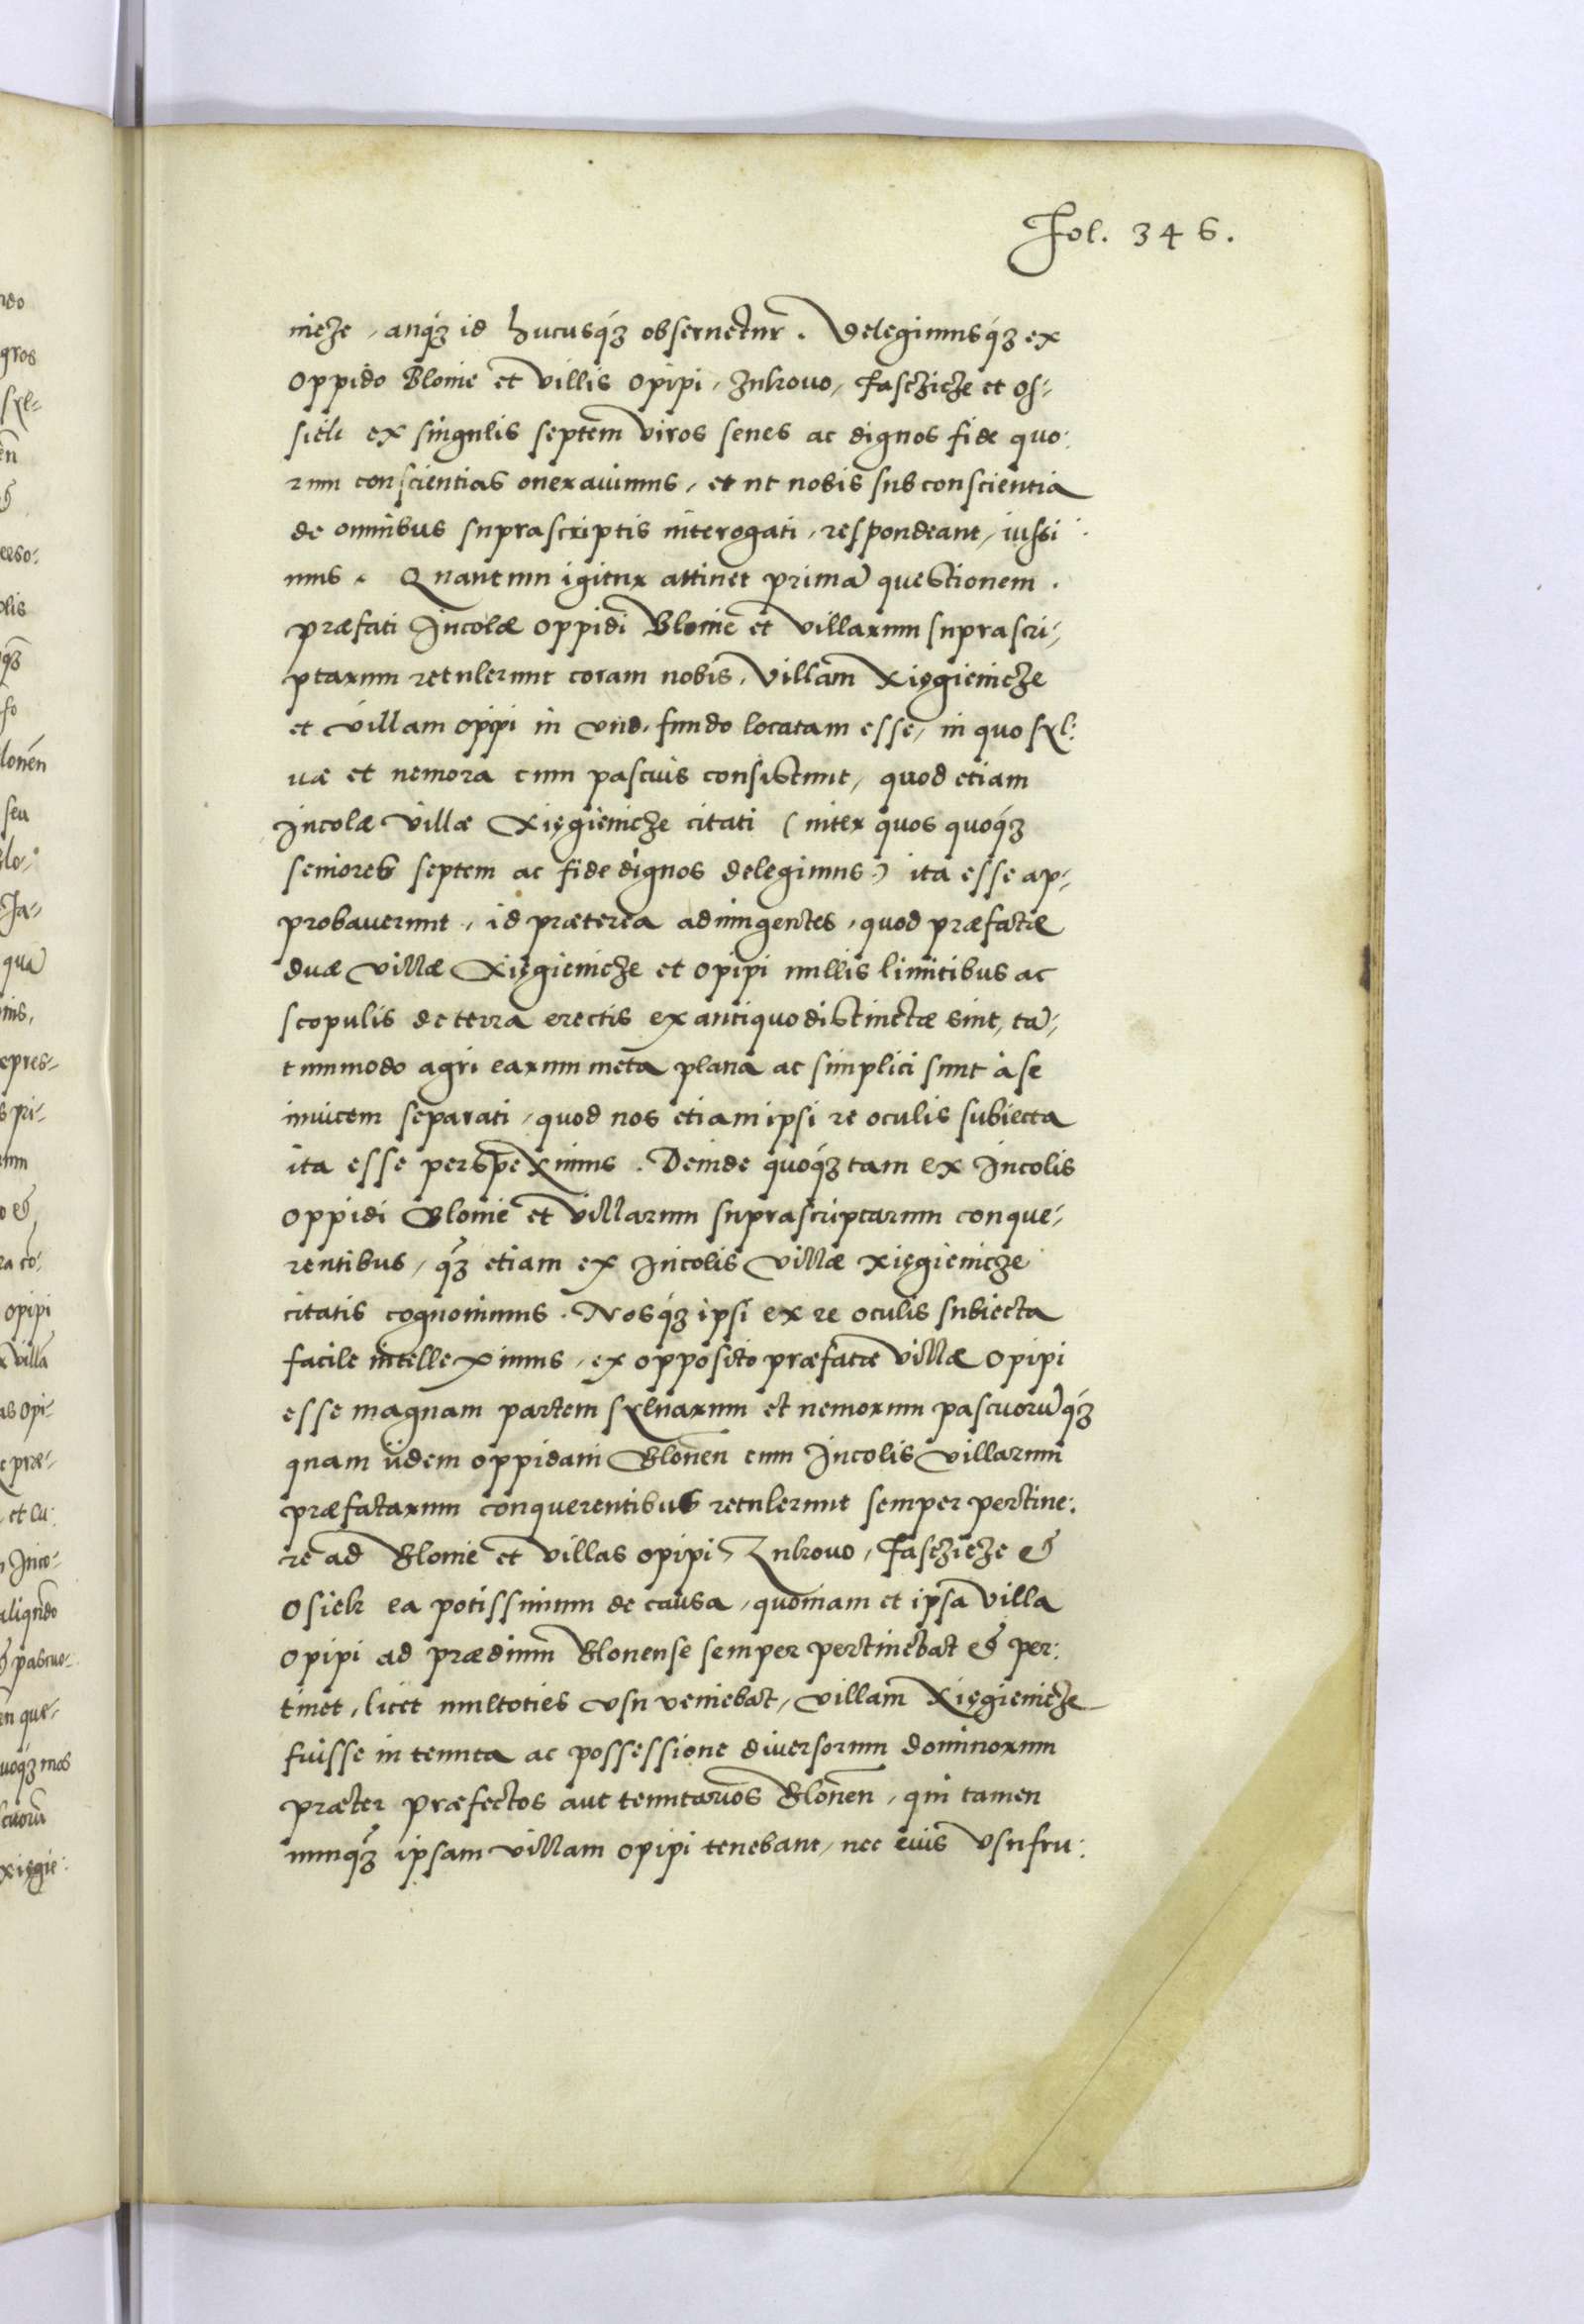 Fol. 346.
nieze, anq3 id hucusq3 observetur. Delegimusq3 ex
oppido Blonie et villis Opipi, Zukowo, Fasczicze et Os-
siek ex singulis septem viros senes ac dignos fide quo:
rum conscientias oneravimus, et ut nobis sub conscientia
de omnibus suprascriptis interogati, respondeant, iussi:
mus. Quantum igitur attinet primā questionem.
præfati Incolæ oppidi Blonie et villarum suprascri-
ptarum retulerunt coram nobis, villam Xięgienicze
et villam Opipi in uno. fundo locatam esse, in quo syl:
uæ et nemora cum pascuis consistunt, quod etiam
Incolæ villæ Xięgienicze citati (inter quos quoq3
seniores septem ac fide dignos delegimus) ita esse ap-
probauerunt, id præterea adiungentes, quod præfatæ
duæ villæ Xięgienicze et Opipi nullis limitibus ac
scopulis de terra erectis ex antiquo distinctæ sint, tā-
tummodo agri earum meta plana ac simplici sunt à se
inuicem separati, quod nos etiam ipsi re oculis subiecta
ita esse perspeximus. Deinde quoq3 tam ex Incolis
oppidi Blonie et villarum suprascriptarum conque-
rentibus, q3 etiam ex Incolis villæ Xięgienicze
citatis cognouimus. Nosq3 ipsi ex re oculis subiecta
facile intelleximus, ex opposito præfatæ villæ Opipi
esse magnam partem syluarum et nemorum pascuorūq3
quam iidem oppidani Blonen̄ cum Incolis villarum
præfatarum conquerentibus retulerunt semper pertine:
re ad Blonie et villas Opipi, Zukowo, Fasczicze &
Osiek ea potissimum de causa, quoniam et ipsa villa
Opipi ad prædium Blonense semper pertinebat & per:
tinet, licet multoties usu veniebat, villam Xięgienicze
fuisse in tenuta ac possessione diuersorum dominorum
præter præfectos aut tenutarios Blonen̄, qui tamen
nunq3 ipsam villam Opipi tenebant, nec eius usufru: